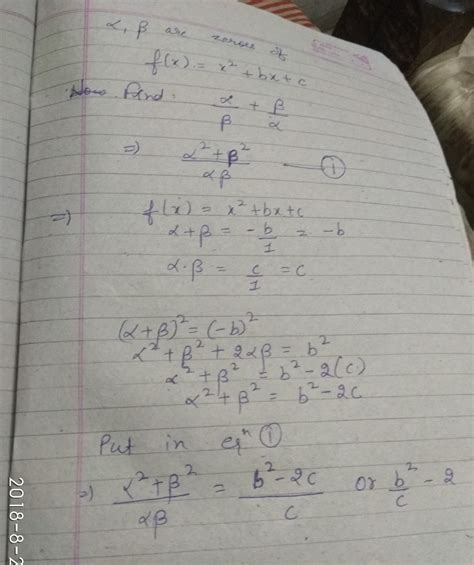 α, β are zeroes of
f(x) = x² + bx + c
Find α/β + β/α
⇒ (α² + β²)/αβ —— ①
⇒ f(x) = x² + bx + c
α + β = -b/1 = -b
α·β = c/1 = c
(α + β)² = (-b)²
α² + β² + 2αβ = b²
α² + β² = b² - 2(c)
α² + β² = b² - 2c
Put in eqⁿ ①
⇒ (α² + β²)/αβ = (b² - 2c)/c or b²/c - 2
2018-8-2